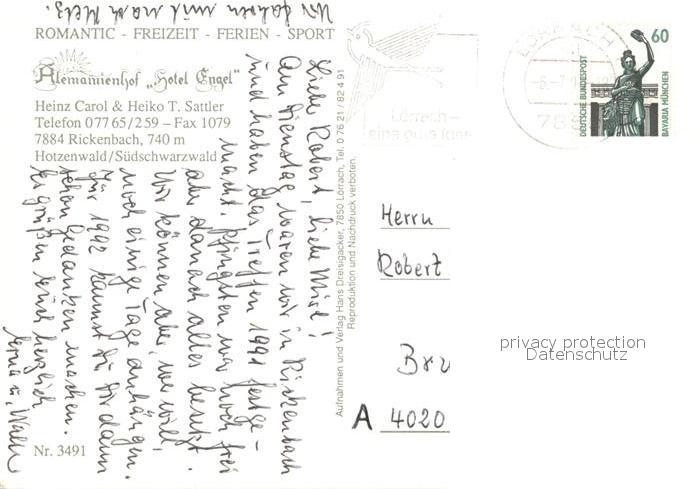 ROMANTIC - FREIZEIT - FERIEN - SPORT
Alemannenhof „Hotel Engel"
Heinz Carol & Heiko T. Sattler
Telefon 07765/259 – Fax 1079
7884 Rickenbach, 740 m
Hotzenwald/Südschwarzwald
Nr. 3491
Liebe Robert, liebe Mist!
Am Dienstag waren wir in Rickenbach
und haben das Treffen 1991 festge-
macht. Pfingsten war noch frei
aber danach alles besetzt.
Wir können aber, wer will,
noch einige Tage anhängen.
Für 1992 kannst Du Dir dann
schon Gedanken machen.
Es grüßen Euch herzlich
Erna u. Walter
Wir fahren mit nach Metz.
Aufnahmen und Verlag Hans Dreisigacker, 7850 Lörrach, Tel. 07621/82491
Reproduktion und Nachdruck verboten.
LÖRRACH
Lörrach –
eine gute Idee
60
DEUTSCHE BUNDESPOST
BAVARIA MÜNCHEN
Herrn
Robert
A 4020
privacy protection
Datenschutz